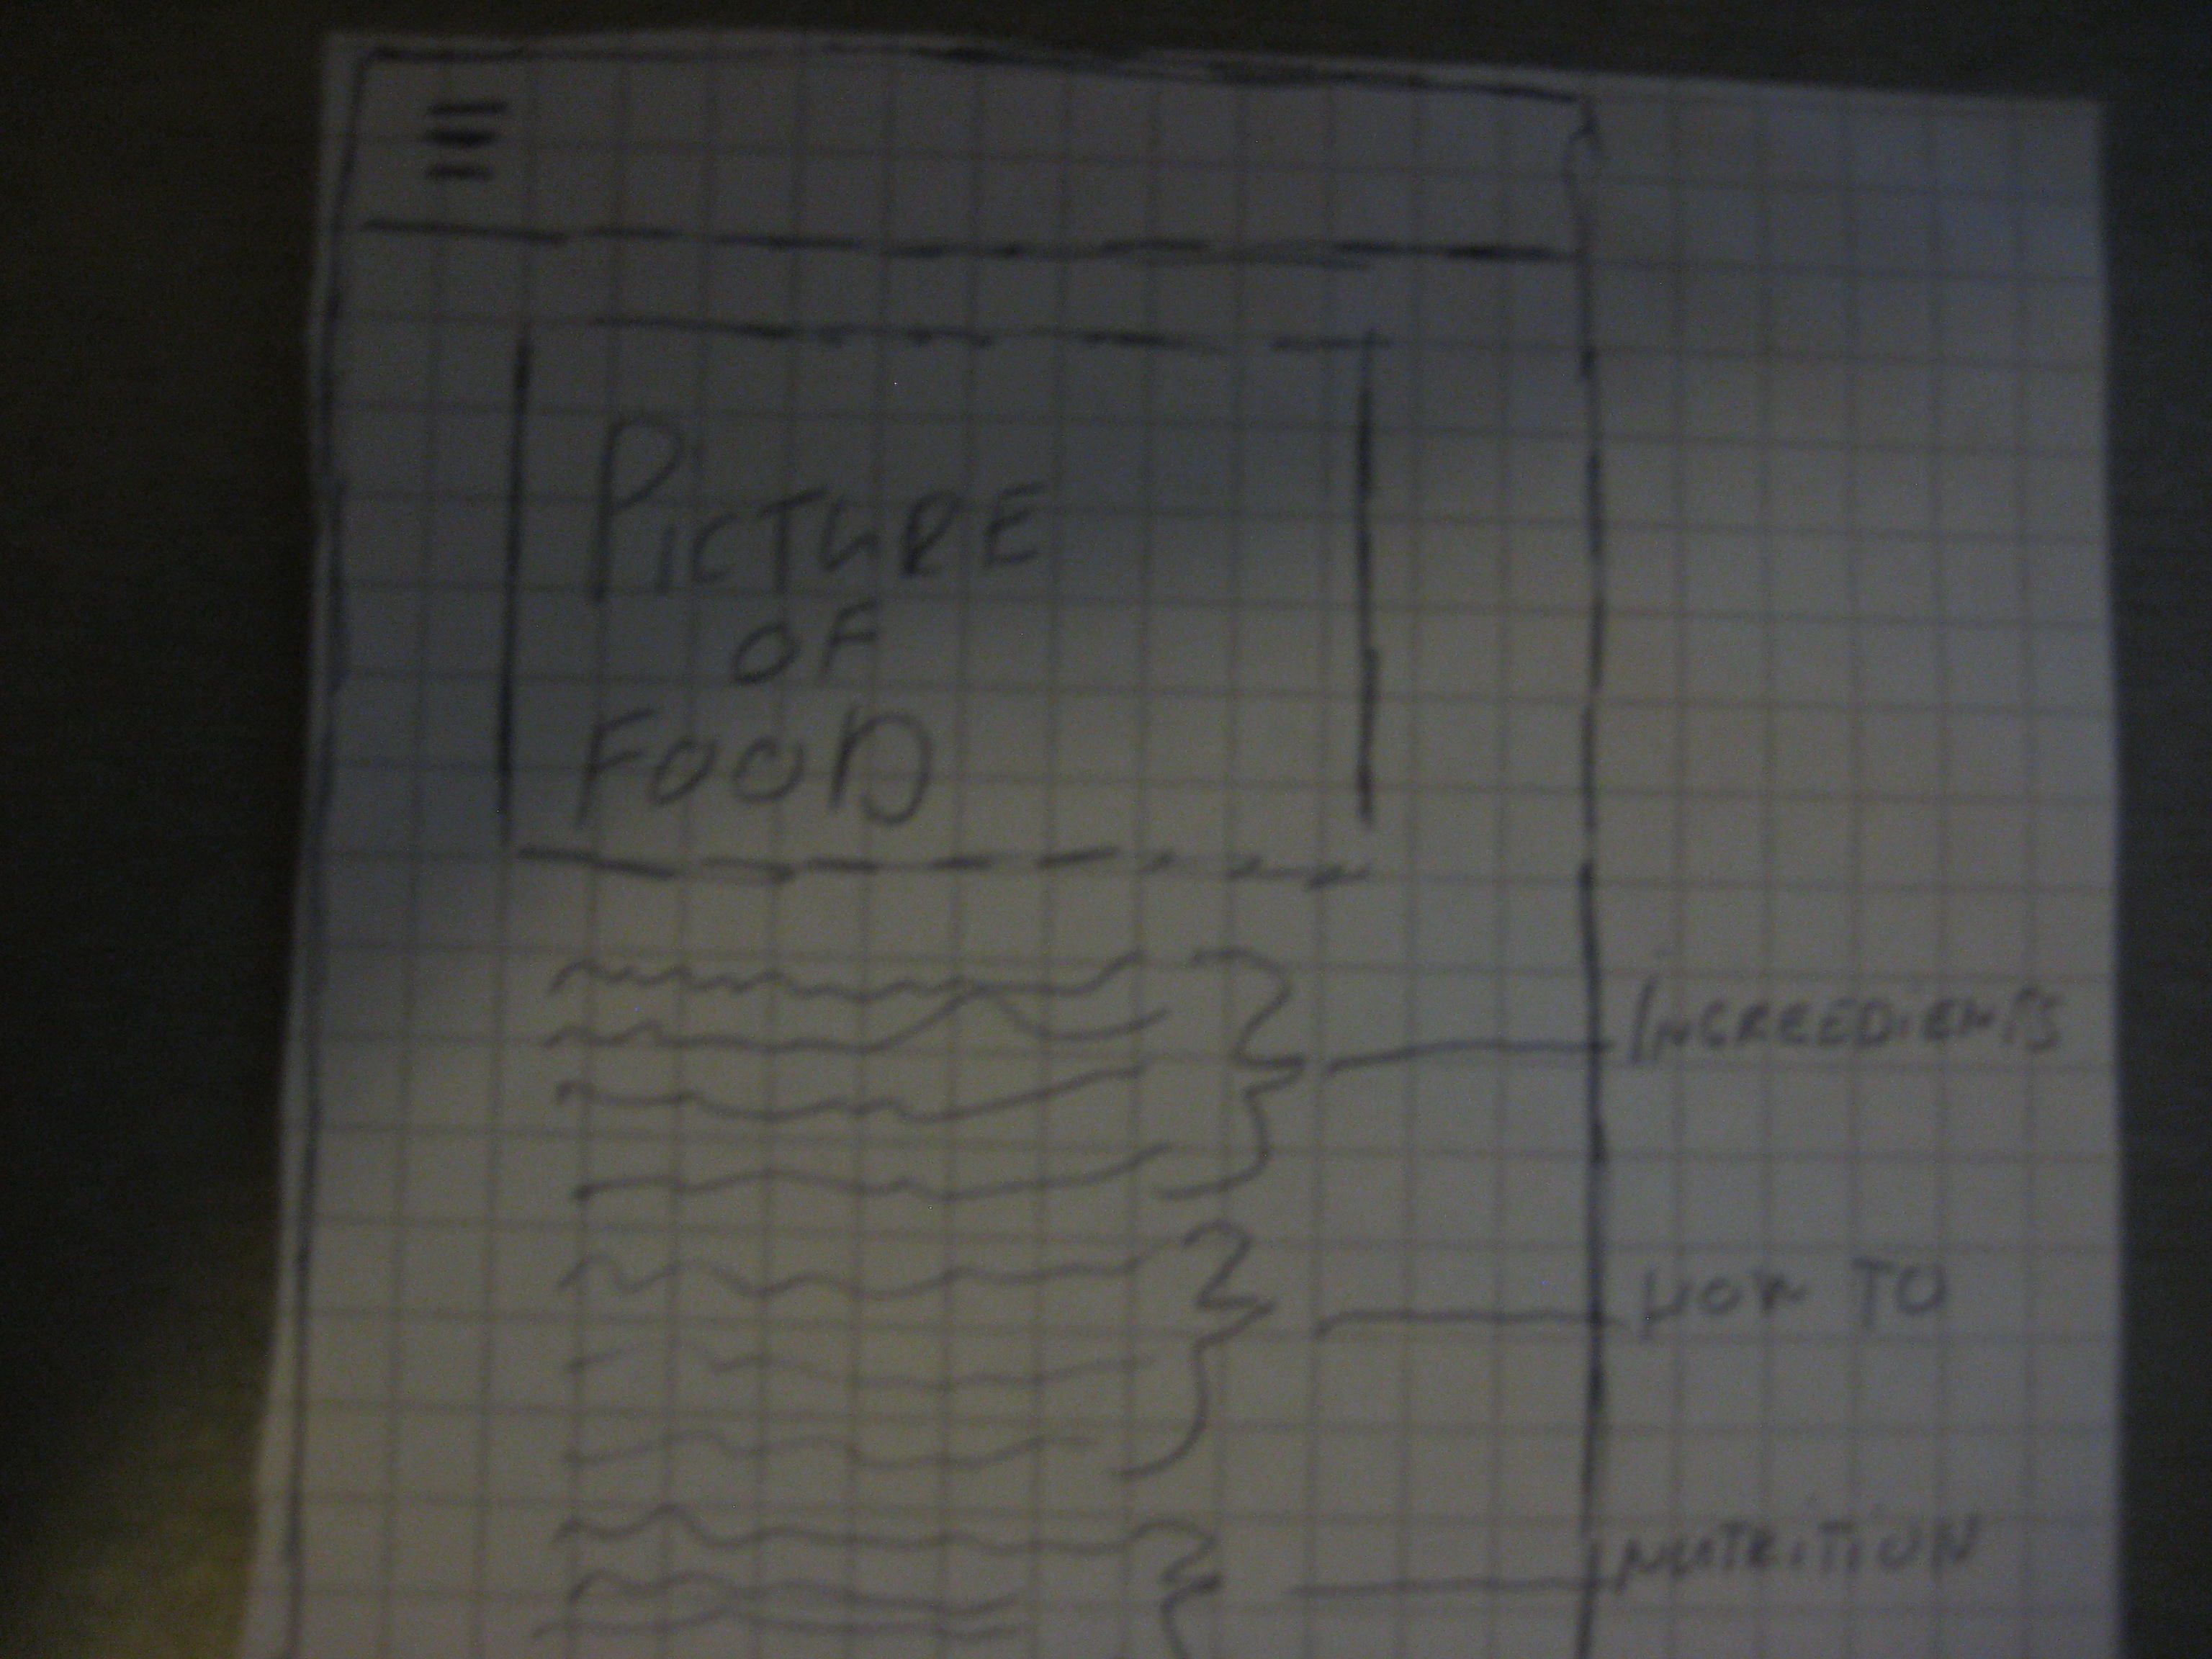 PICTURE
OF
FOOD
INGREEDIENTS
HOW TO
NUTRITION